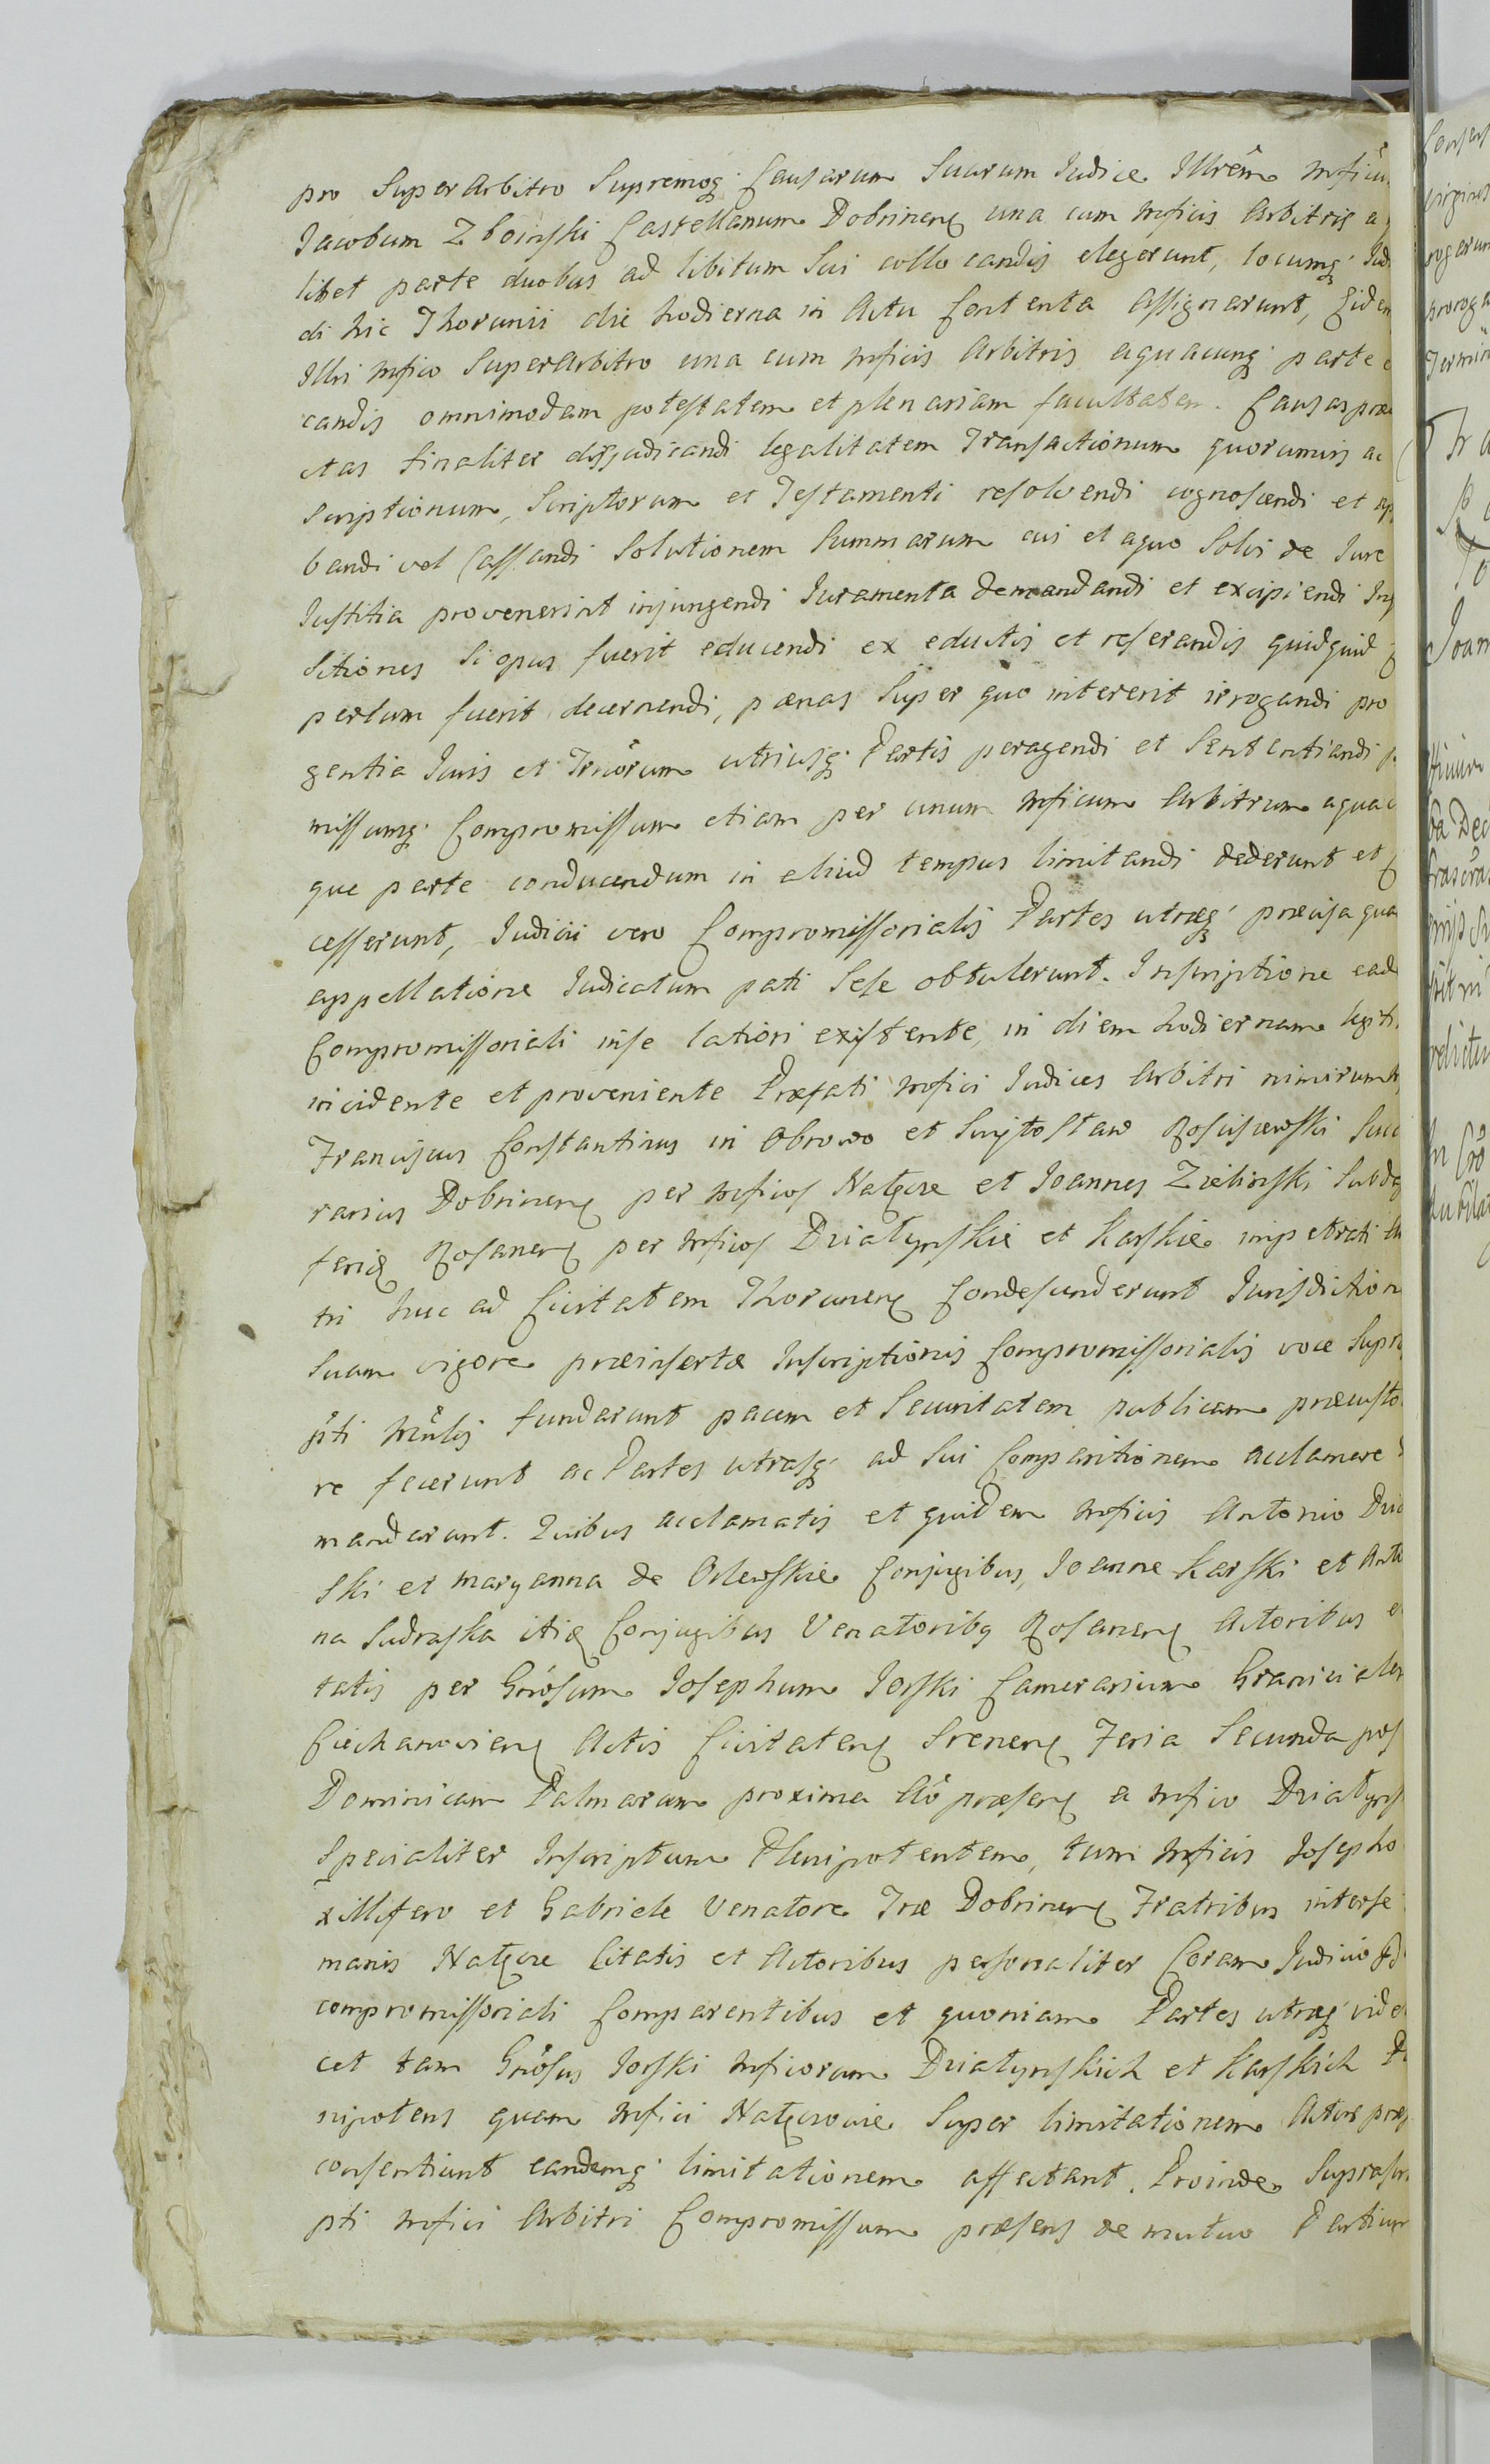 pro Superarbitro Supremoq; Causarum Suarum Judice Illrem Mficu
Jacobum Zboinski Castellanum Dobrinens una cum Mficis Arbitris a
libet parte duobus ad libitum Sui collocandis elegerunt, locumq; Iud
di hic Thorunii die hodierna in Actu Contenta assignarunt, Eidem
Illri Mfico Superarbitro una cum Mficis Arbitris aquacunq; parte
candis omnimodam potestatem et plenariam facultatem. Causas præ
ctas finaliter disjudicandi legalitatem Transactionum quorumvis ac
scriptionum, Scriptorum et Testamenti resolvendi cognoscendi et ap
bandi vel Cassandi Solutionem Summarum cui et aquo Solvi de Jure
Justitia provenerint injungendi Juramenta demandandi et excipiendi Inq
sitiones Si opus fuerit educendi ex eductis et reserandis quidquid
pertum fuerit decernendi, pænas Super quo intererit irrogandi pro
gentia Juris et Trnorum utriusq; Partis peragendi et Sententiandi
missumq; Compromissum etiam per unum Mficum Arbitrum aquac
que parte conducendum in aliud tempus limitandi dederunt et
cesserunt, Judicii vero Compromissorialis Partes utræq; præcisa qua
appellatione Judicatum pati Sese obtulerunt. Inscriptione ead
Compromissoriali inse latiori existente, in diem hodiernam legiti
incidente et proveniente Præfati Mfici Judices Arbitri nimirum
Franciscus Constantinus in Obrowo et Scrzytostaw Rosciszewski Succ
rarius Dobrinens per Mficos Natęcze et Joannes Zielinski Subda
feriæ Rosanens per Mficos Działyńskie et Karskie impetrati
tri huc ad Civitatem Thorunens Condescenderunt Jurisdiction
Suam vigore præinsertæ Inscriptionis Compromissorialis voce Supra
pti Mrlis fundarunt pacem et Securitatem publicam præcusto
re fecerunt ac Partes utrasq; ad Sui Comparitionem acclamare
mandarunt. Quibus acclamatis et quidem Mficis Antonio Dzia
ski et Maryanna de Orlewskie Conjugibus, Joanne Karski et Anto
na Sudraska itiæ Conjugibus Venatoribq Rosanens Actoribus
tatis per Gnosum Josephum Jorski Camerarium Granicialem
Ciechanoviens Actis Civitatens Srenens Feria Secunda pos
Dominicam Palmarum proxima Ao præsens a Mfico Działyns
Specialiter Inscriptum Plenipotentem, tum Mficis Josepho
xillifero et Gabriele Venatore Træ Dobrinens Fratribus interse
manis Natęcze Citatis et Actoribus personaliter Coram Judicio
compromissoriali Comparentibus et quoniam Partes utræq; vide
cet tam Gnosus Jorski Mficorum Działynskich et Karskich
nipotens quam Mfici Natęczowie Super limitationem Actus præs
consentiunt eandemq; limitationem affectant. Proinde Suprascri
pti Mfici Arbitri Compromissum præsens de mutuo Partium